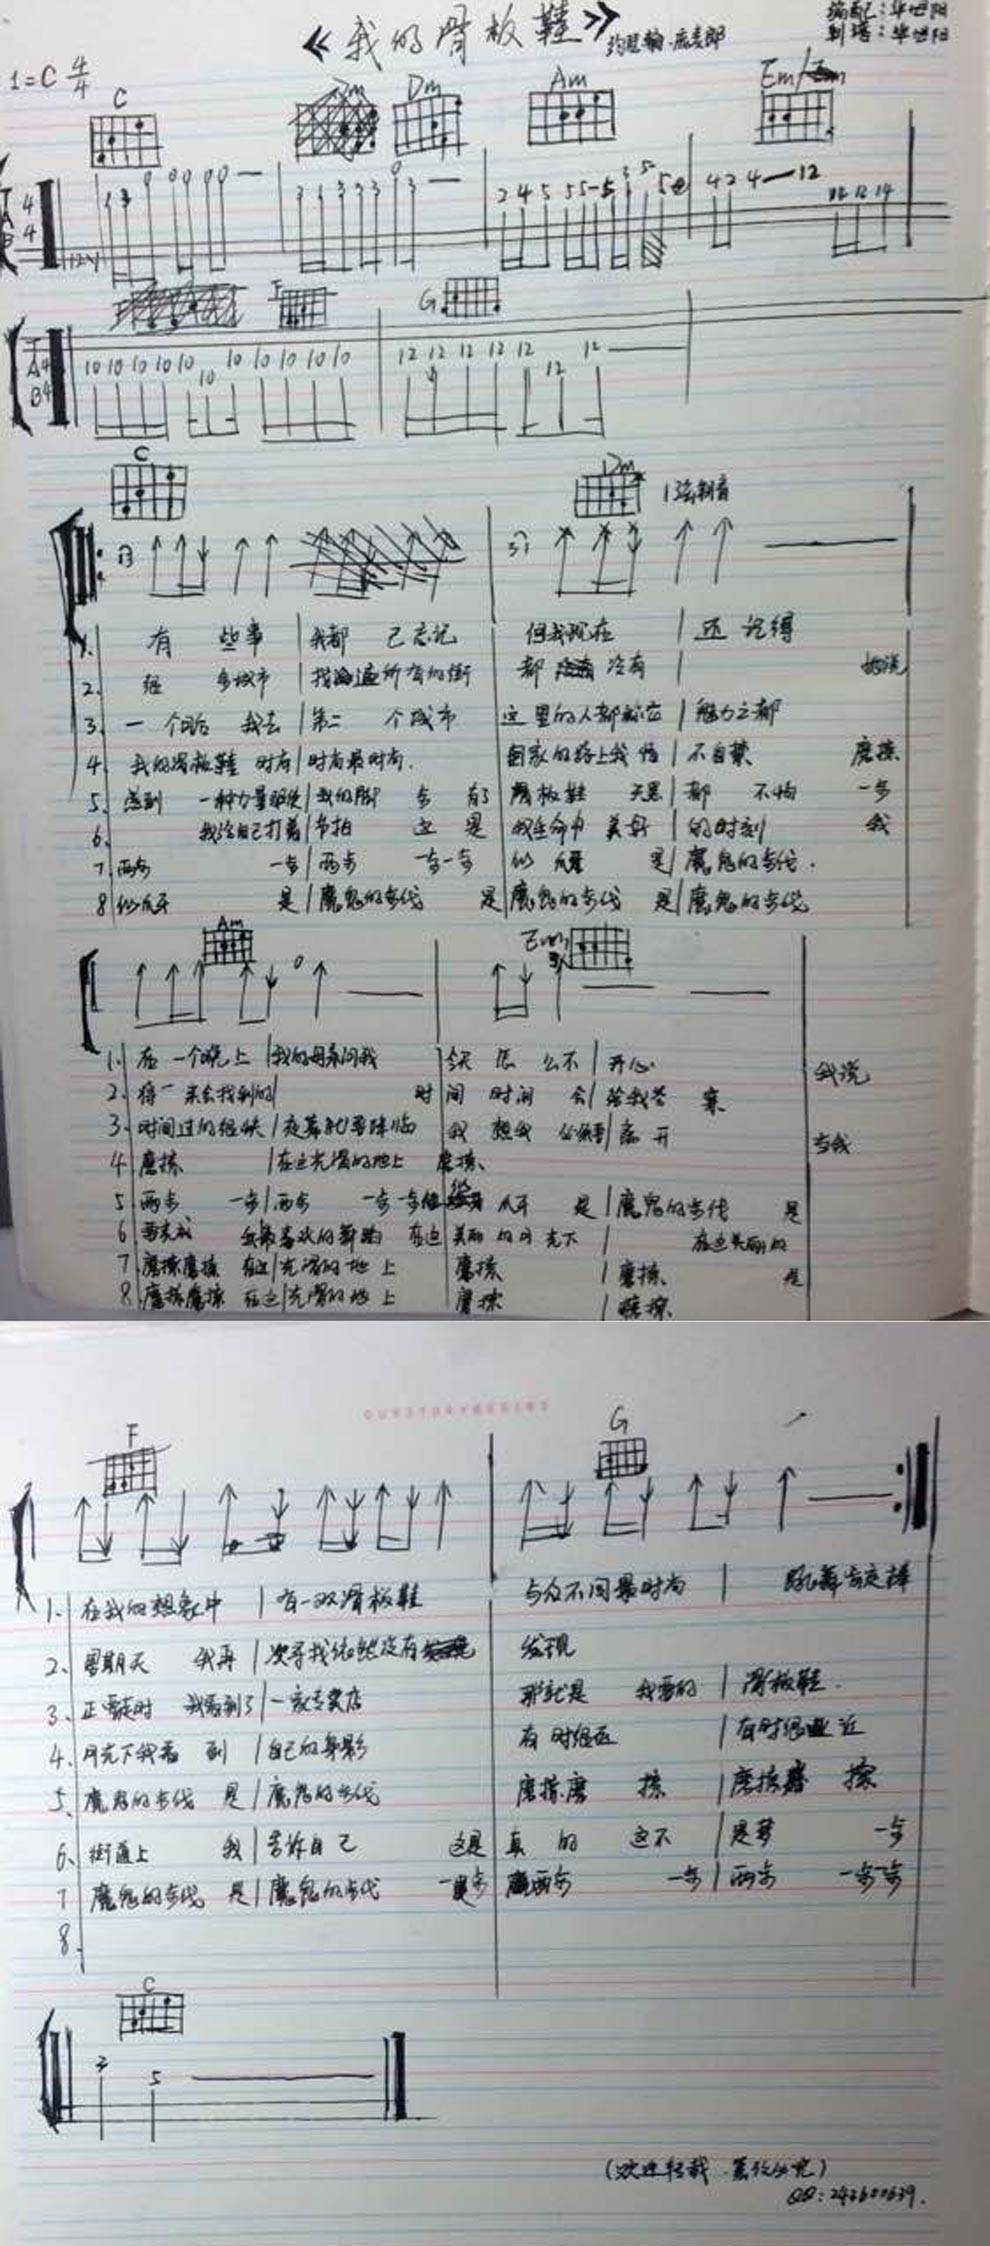 《我的滑板鞋》
约瑟翰·庞麦郎
编配:华世阳
制谱:华世阳
1=C 4/4
C Dm Am Em
T A B 4 4
F G
T A B 4 4
10 10 10 10 10 10 10 10 10 10 10
12 12 12 12 12 12 12
C Dm
1. 有 些事 | 我都 已忘记 但我现在 | 还 记得
2.
3. 一 个后 我去 | 第二 个城市 这里的人都称它 | 魅力之都
4. 我的滑板鞋 时尚 | 时尚最时尚. 回家的路上我 | 不自禁 磨擦
5. 感到 一种力量驱使 | 我的脚 有了滑板鞋 天黑 | 都 不怕 一步
6. 我给自己打着 | 节拍 这 是 我生命中 美好 | 的时刻 我
7. 两步 一步 | 两步 一步一步 似爪牙 是 | 魔鬼的步伐.
8. 似爪牙 是 | 魔鬼的步伐 是 魔鬼的步伐 是 | 魔鬼的步伐
Am Em
1. 在 一个晚上 | 我的母亲问我 今天 怎 么不 | 开心 我说
2. 将 来会找到的 | 时 间 时间 会 | 给我答 案
3. 时间过的很快 | 夜幕就要降临 我 想我 必须要 | 离 开 当我
4. 磨擦 | 在这光滑的地上 磨擦
5. 两步 一步 | 两步 一步一步 爪牙 是 | 魔鬼的步伐 是
6. 我最喜欢的舞蹈 在这 美丽 的月光下 | 在这美丽的
7. 磨擦磨擦 在这 | 光滑的地 上 磨擦 | 磨擦 是
8. 磨擦磨擦 在这 | 光滑的地 上 磨擦 | 磨擦
F G
1. 在我的想象中 | 有一双滑板鞋 与众不同最时尚 | 跳舞肯定棒
2. 星期天 我再 | 次寻找依然没有 发现
3. 正要走时 我看到了 | 一家专卖店 那就是 我要的 | 滑板鞋.
4. 月光下我看 到 | 自己的身影 有时很远 | 有时很近
5. 魔鬼的步伐 是 | 魔鬼的步伐 磨擦磨 擦 | 磨擦磨 擦
6. 街道上 我 | 告诉自己 这是 真 的 这不 | 是梦 一步
7. 魔鬼的步伐 是 | 魔鬼的步伐 一步 两步 一步 | 两步 一步一步
8.
C
3 5
(欢迎转载.
QQ:243600639.